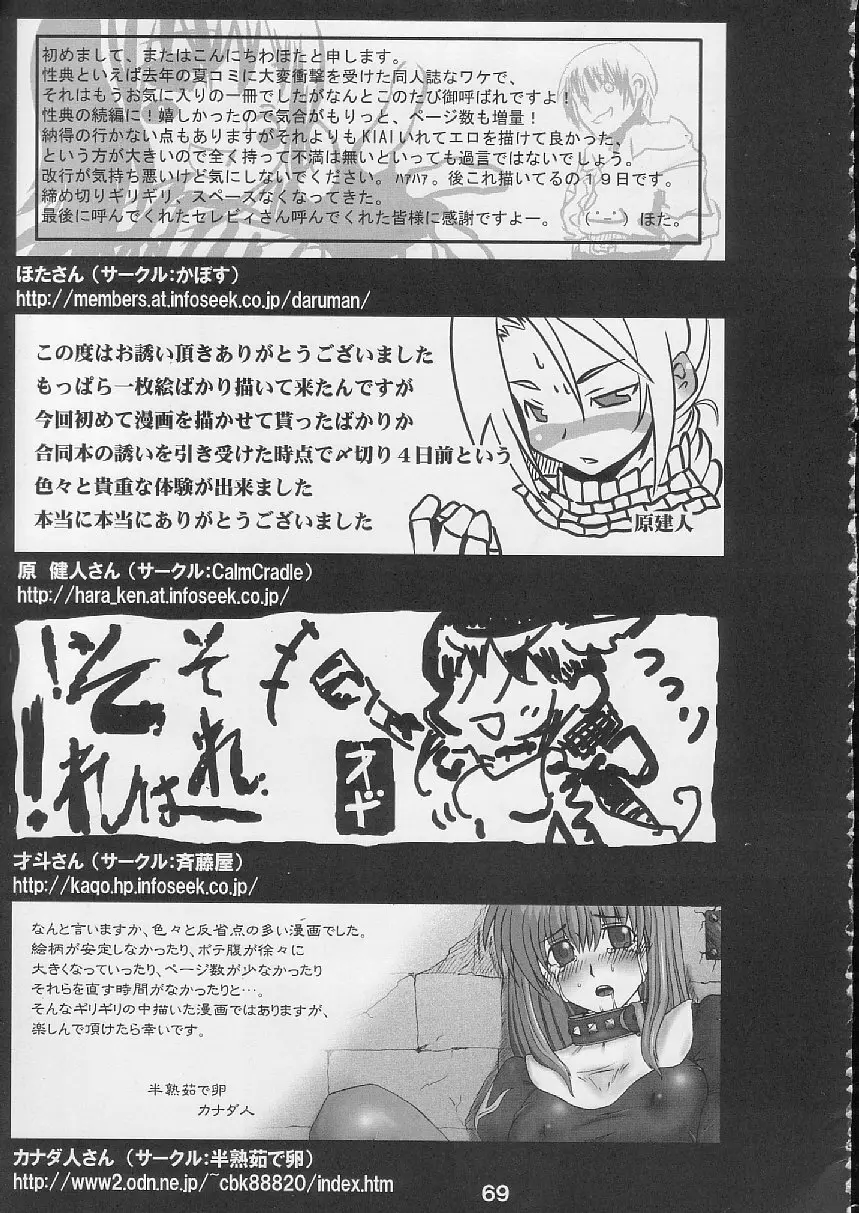 初めまして、またはこんにちわほたと申します。
性典といえば去年の夏コミに大変衝撃を受けた同人誌なワケで、
それはもうお気に入りの一冊でしたがなんとこのたび御呼ばれですよ！
性典の続編に！嬉しかったので気合がもりっと、ページ数も増量！
納得の行かない点もありますがそれよりもKIAIいれてエロを描けて良かった、
という方が大きいので全く持って不満は無いといっても過言ではないでしょう。
改行が気持ち悪いけど気にしないでください。ﾊｱﾊｱ。後これ描いてるの１９日です。
締め切りギリギリ、スペースなくなってきた。
最後に呼んでくれたセレビィさん呼んでくれた皆様に感謝ですよー。　（˙−˙）ほた。
ほたさん（サークル:かぼす）
http://members.at.infoseek.co.jp/daruman/
この度はお誘い頂きありがとうございました
もっぱら一枚絵ばかり描いて来たんですが
今回初めて漫画を描かせて貰ったばかりか
合同本の誘いを引き受けた時点で〆切り４日前という
色々と貴重な体験が出来ました
本当に本当にありがとうございました
原建人
原　健人さん（サークル:CalmCradle）
http://hara_ken.at.infoseek.co.jp/
それ
それは
！！
つつつり
才斗さん（サークル:斉藤屋）
http://kaqo.hp.infoseek.co.jp/
なんと言いますか、色々と反省点の多い漫画でした。
絵柄が安定しなかったり、ボテ腹が徐々に
大きくなっていったり、ページ数が少なかったり
それらを直す時間がなかったりと…。
そんなギリギリの中描いた漫画ではありますが、
楽しんで頂けたら幸いです。
半熟茹で卵
カナダ人
カナダ人さん（サークル:半熟茹で卵）
http://www2.odn.ne.jp/~cbk88820/index.htm
69